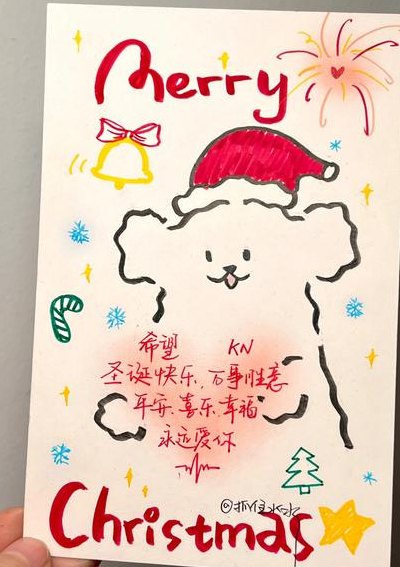 Merry
希望 KN
圣诞快乐,万事胜意
平安.喜乐.幸福
永远爱你
@抓住水水
Christmas